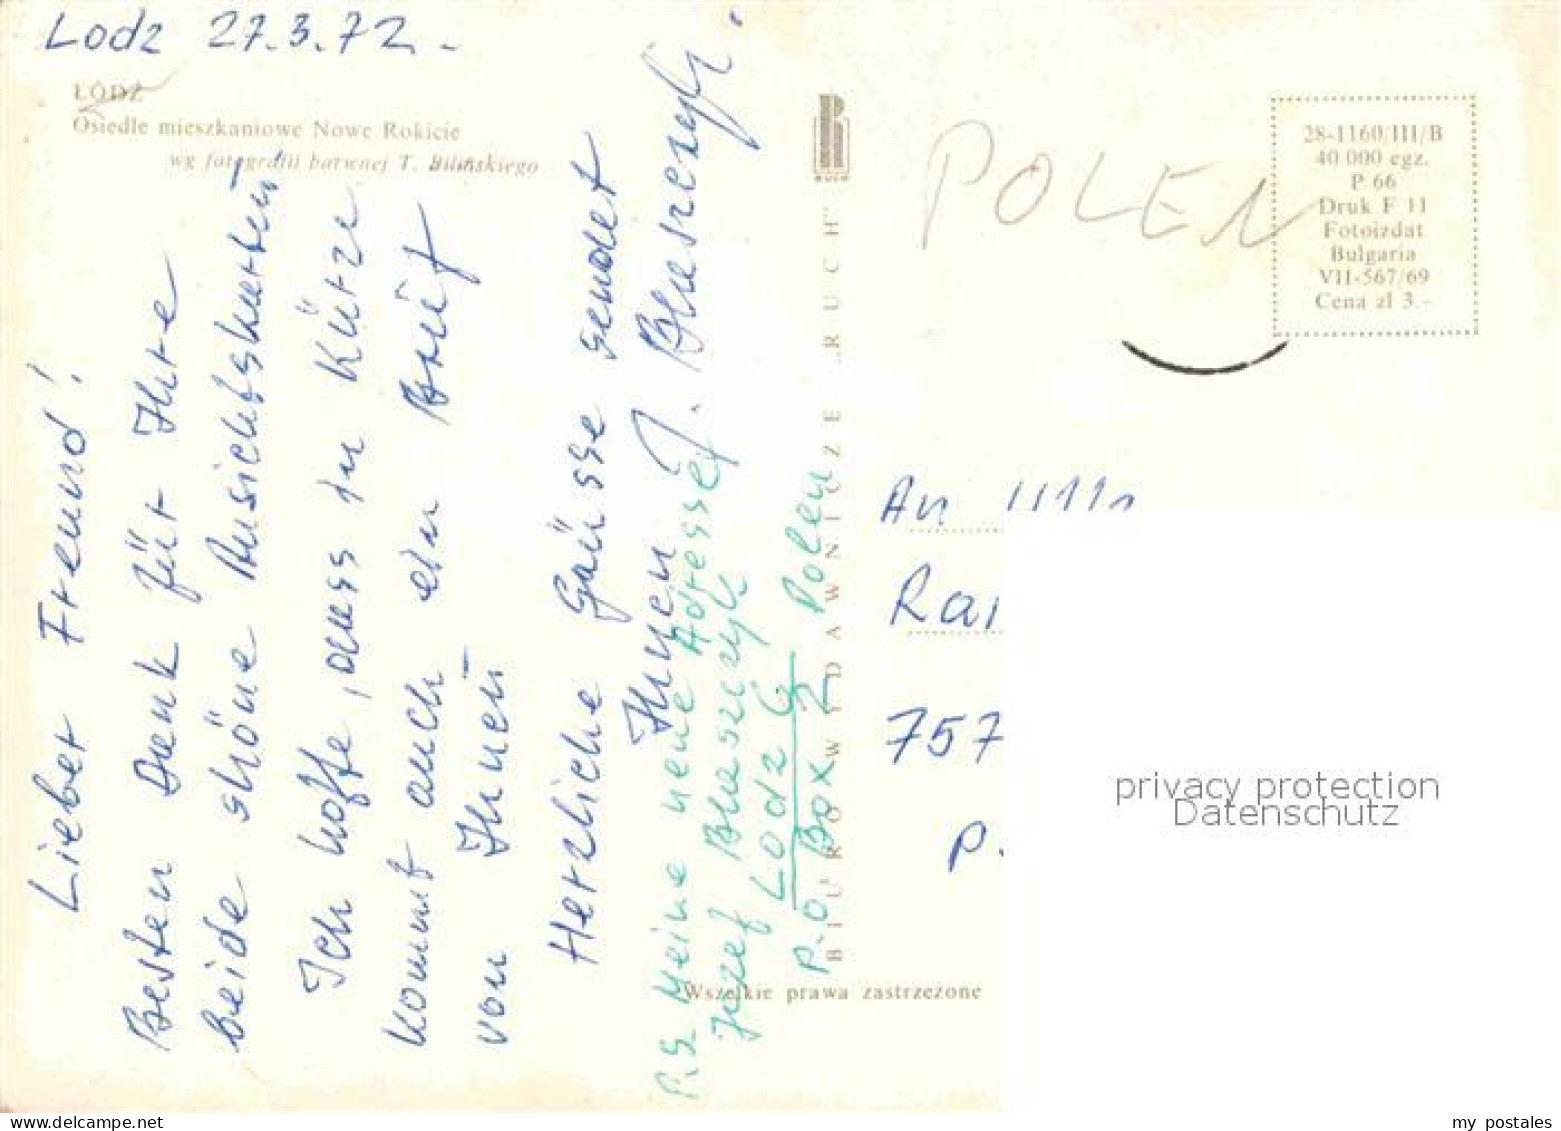 Lodz 27.3.72.-
ŁÓDŹ
Osiedle mieszkaniowe Nowe Rokicie
wg fotografii barwnej T. Bilińskiego
Lieber Freund!
Besten Dank für Ihre
beide shöne Ansichtskarten
Ich hoffe, dass in Kürze
kommt auch ein Brief
von Ihnen
Herzliche Grüsse sendet
Ihnen J. Blaszczyk.
P.S. Meine neue Adresse:
Józef Blaszczyk
Lodz 6
P.O Box 2 Polen
RUCH
BIURO WYDAWNICZE „RUCH"
Wszelkie prawa zastrzeżone
POLEN
28-1160/III/B
40 000 egz.
P 66
Druk F 11
Fotoizdat
Bulgaria
VII-567/69
Cena zł 3.-
An
Rai
757
P.
privacy protection
Datenschutz
my postales